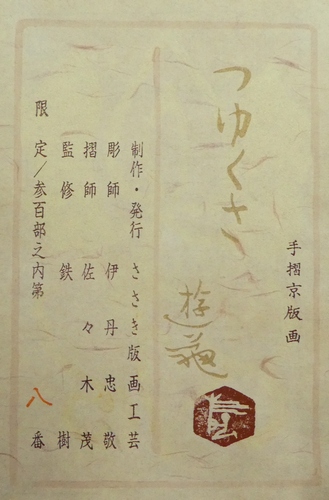 手摺京版画
つゆくさ
遊
制作・発行 ささき版画工芸
彫師 伊丹忠敬
摺師 佐々木茂
監修 鉄樹
限定/参百部之内第八番